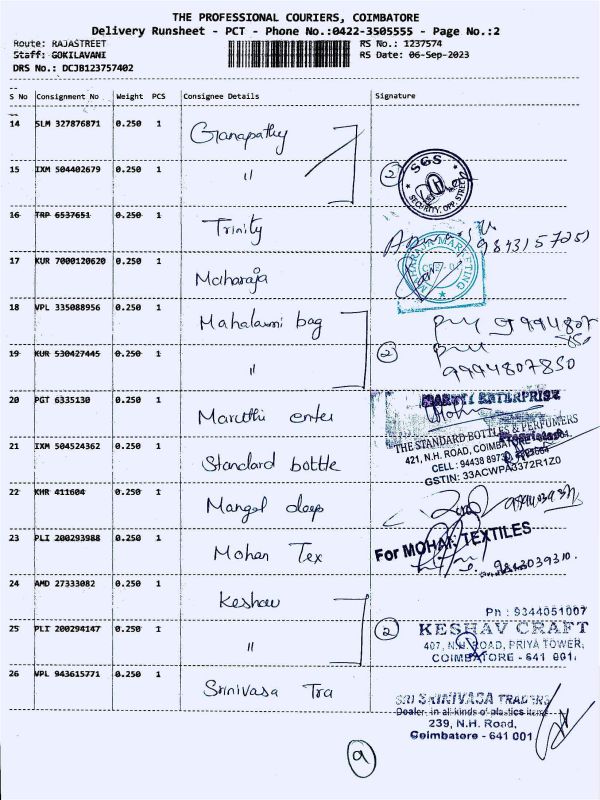 THE PROFESSIONAL COURIERS, COIMBATORE
Delivery Runsheet - PCT - Phone No.:0422-3505555 - Page No.:2
Route: RAJASTREET RS No.: 1237574
Staff: GOKILAVANI RS Date: 06-Sep-2023
DRS No.: DCJB123757402
S No Consignment No Weight PCS Consignee Details Signature
14 SLM 327876871 0.250 1 Ganapathy
15 IXM 504402679 0.250 1 "
2 SGS
SECURITY, OPP. STREET
16 TRP 6537651 0.250 1 Trinity
9843157251
17 KUR 7000120620 0.250 1 Maharaja
MAHARAJA MARKETING
18 VPL 335088956 0.250 1 Mahalaxmi bag
9994807
850
19 KUR 530427445 0.250 1 "
2 9994807850
20 PGT 6335130 0.250 1 Maruthi enter
MARUTI ENTERPRISE
21 IXM 504524362 0.250 1 Standard bottle
THE STANDARD BOTTLES & PERFUMERS
421, N.H. ROAD, COIMBATORE
CELL : 94438
GSTIN: 33ACWPA3372R1Z0
22 KHR 411604 0.250 1 Mangal deep
23 PLI 200293988 0.250 1 Mohan Tex
For MOHAN TEXTILES
9843039310.
24 AMD 27333082 0.250 1 Keshav
Ph : 9344051007
25 PLI 200294147 0.250 1 "
2 KESHAV CRAFT
407, N.H. ROAD, PRIYA TOWER,
COIMBATORE - 641 001.
26 VPL 943615771 0.250 1 Srinivasa Tra
SRI SRINIVASA TRADERS
Dealer in all kinds of plastics items
239, N.H. Road,
Coimbatore - 641 001
9